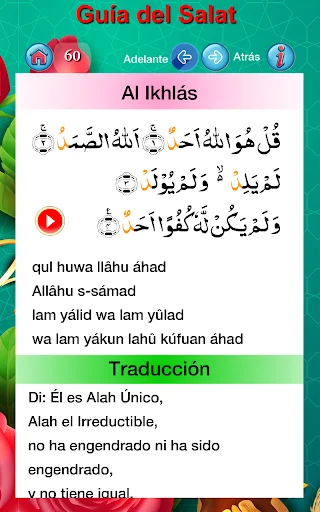 Guía del Salat
60 Adelante Atrás i
Al Ikhlás
قُلْ هُوَ اللّٰهُ اَحَدٌۚ ﴿١﴾ اَللّٰهُ الصَّمَدُۚ ﴿٢﴾
لَمْ يَلِدْ ۙ وَلَمْ يُولَدْ ﴿٣﴾
وَلَمْ يَكُنْ لَّهٗ كُفُوًا اَحَدٌ ﴿٤﴾
qul huwa llâhu áhad
Allâhu s-sámad
lam yálid wa lam yûlad
wa lam yákun lahû kúfuan áhad
Traducción
Di: Él es Alah Único,
Alah el Irreductible,
no ha engendrado ni ha sido
engendrado,
y no tiene igual.